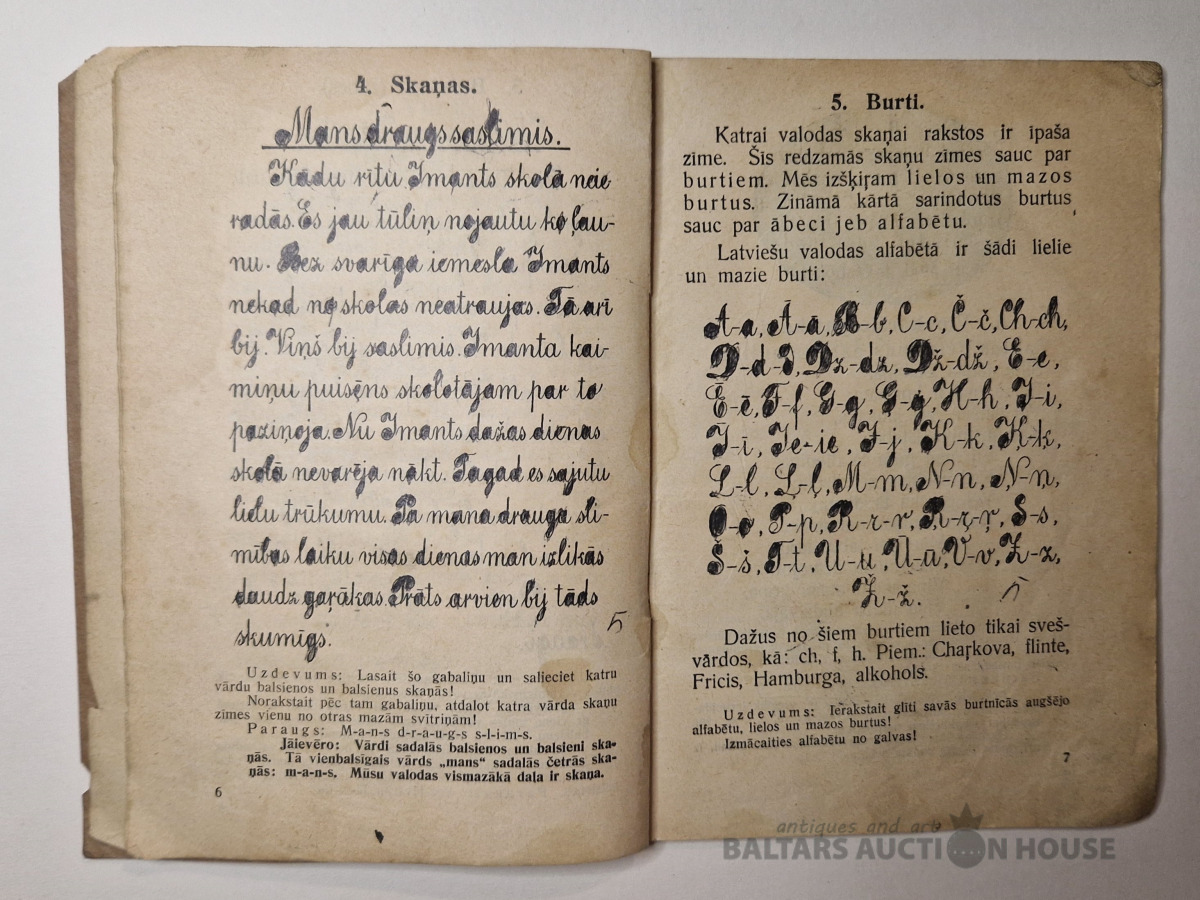 4. Skaņas.
Mans draugs saslimis.
Kādu rītu Imants skolā neie
radās. Es jau tūliņ nojautu ko ļau-
nu. Bez svarīga iemesla Imants
nekad no skolas neatraujas. Tā arī
bij. Viņš bij saslimis. Imanta kai-
miņu puisēns skolotājam par to
paziņoja. Nu Imants dažas dienas
skolā nevarēja nākt. Tagad es sajutu
lielu trūkumu. Pa mana drauga sli-
mības laiku visas dienas man izlikās
daudz gaŗākas. Prāts arvien bij tāds
skumīgs.
Uzdevums: Lasait šo gabaliņu un salieciet katru
vārdu balsienos un balsienus skaņās!
Norakstait pēc tam gabaliņu, atdalot katra vārda skaņu
zīmes vienu no otras mazām svītriņām!
Paraugs: M-a-n-s d-r-au-g-s s-l-i-m-s.
Jāievēro: Vārdi sadalās balsienos un balsieni ska-
ņās. Tā vienbalsīgais vārds „mans" sadalās četrās ska-
ņās: m-a-n-s. Mūsu valodas vismazākā daļa ir skaņa.
6
5. Burti.
Katrai valodas skaņai rakstos ir īpaša
zīme. Šīs redzamās skaņu zīmes sauc par
burtiem. Mēs izšķiŗam lielos un mazos
burtus. Zināmā kārtā sarindotus burtus
sauc par ābeci jeb alfabētu.
Latviešu valodas alfabētā ir šādi lielie
un mazie burti:
A-a, Ā-ā, B-b, C-c, Č-č, Ch-ch,
D-d-d, Dz-dz, Dž-dž, E-e,
Ē-ē, F-f, G-g, Ģ-ģ, H-h, I-i,
Ī-ī, Ie-ie, J-j, K-k, Ķ-ķ,
L-l, Ļ-ļ, M-m, N-n, Ņ-ņ,
O-o, P-p, R-r-r, Ŗ-ŗ-ŗ, S-s,
Š-š, T-t, U-u, Ū-ū, V-v, Z-z,
Ž-ž.
Dažus no šiem burtiem lieto tikai sveš-
vārdos, kā: ch, f, h. Piem.: Chaŗkova, flinte,
Fricis, Hamburga, alkohols.
Uzdevums: Ierakstait glīti savās burtnīcās augšējo
alfabētu, lielos un mazos burtus!
Izmācaities alfabētu no galvas!
7
antiques and art
BALTARS AUCTION HOUSE